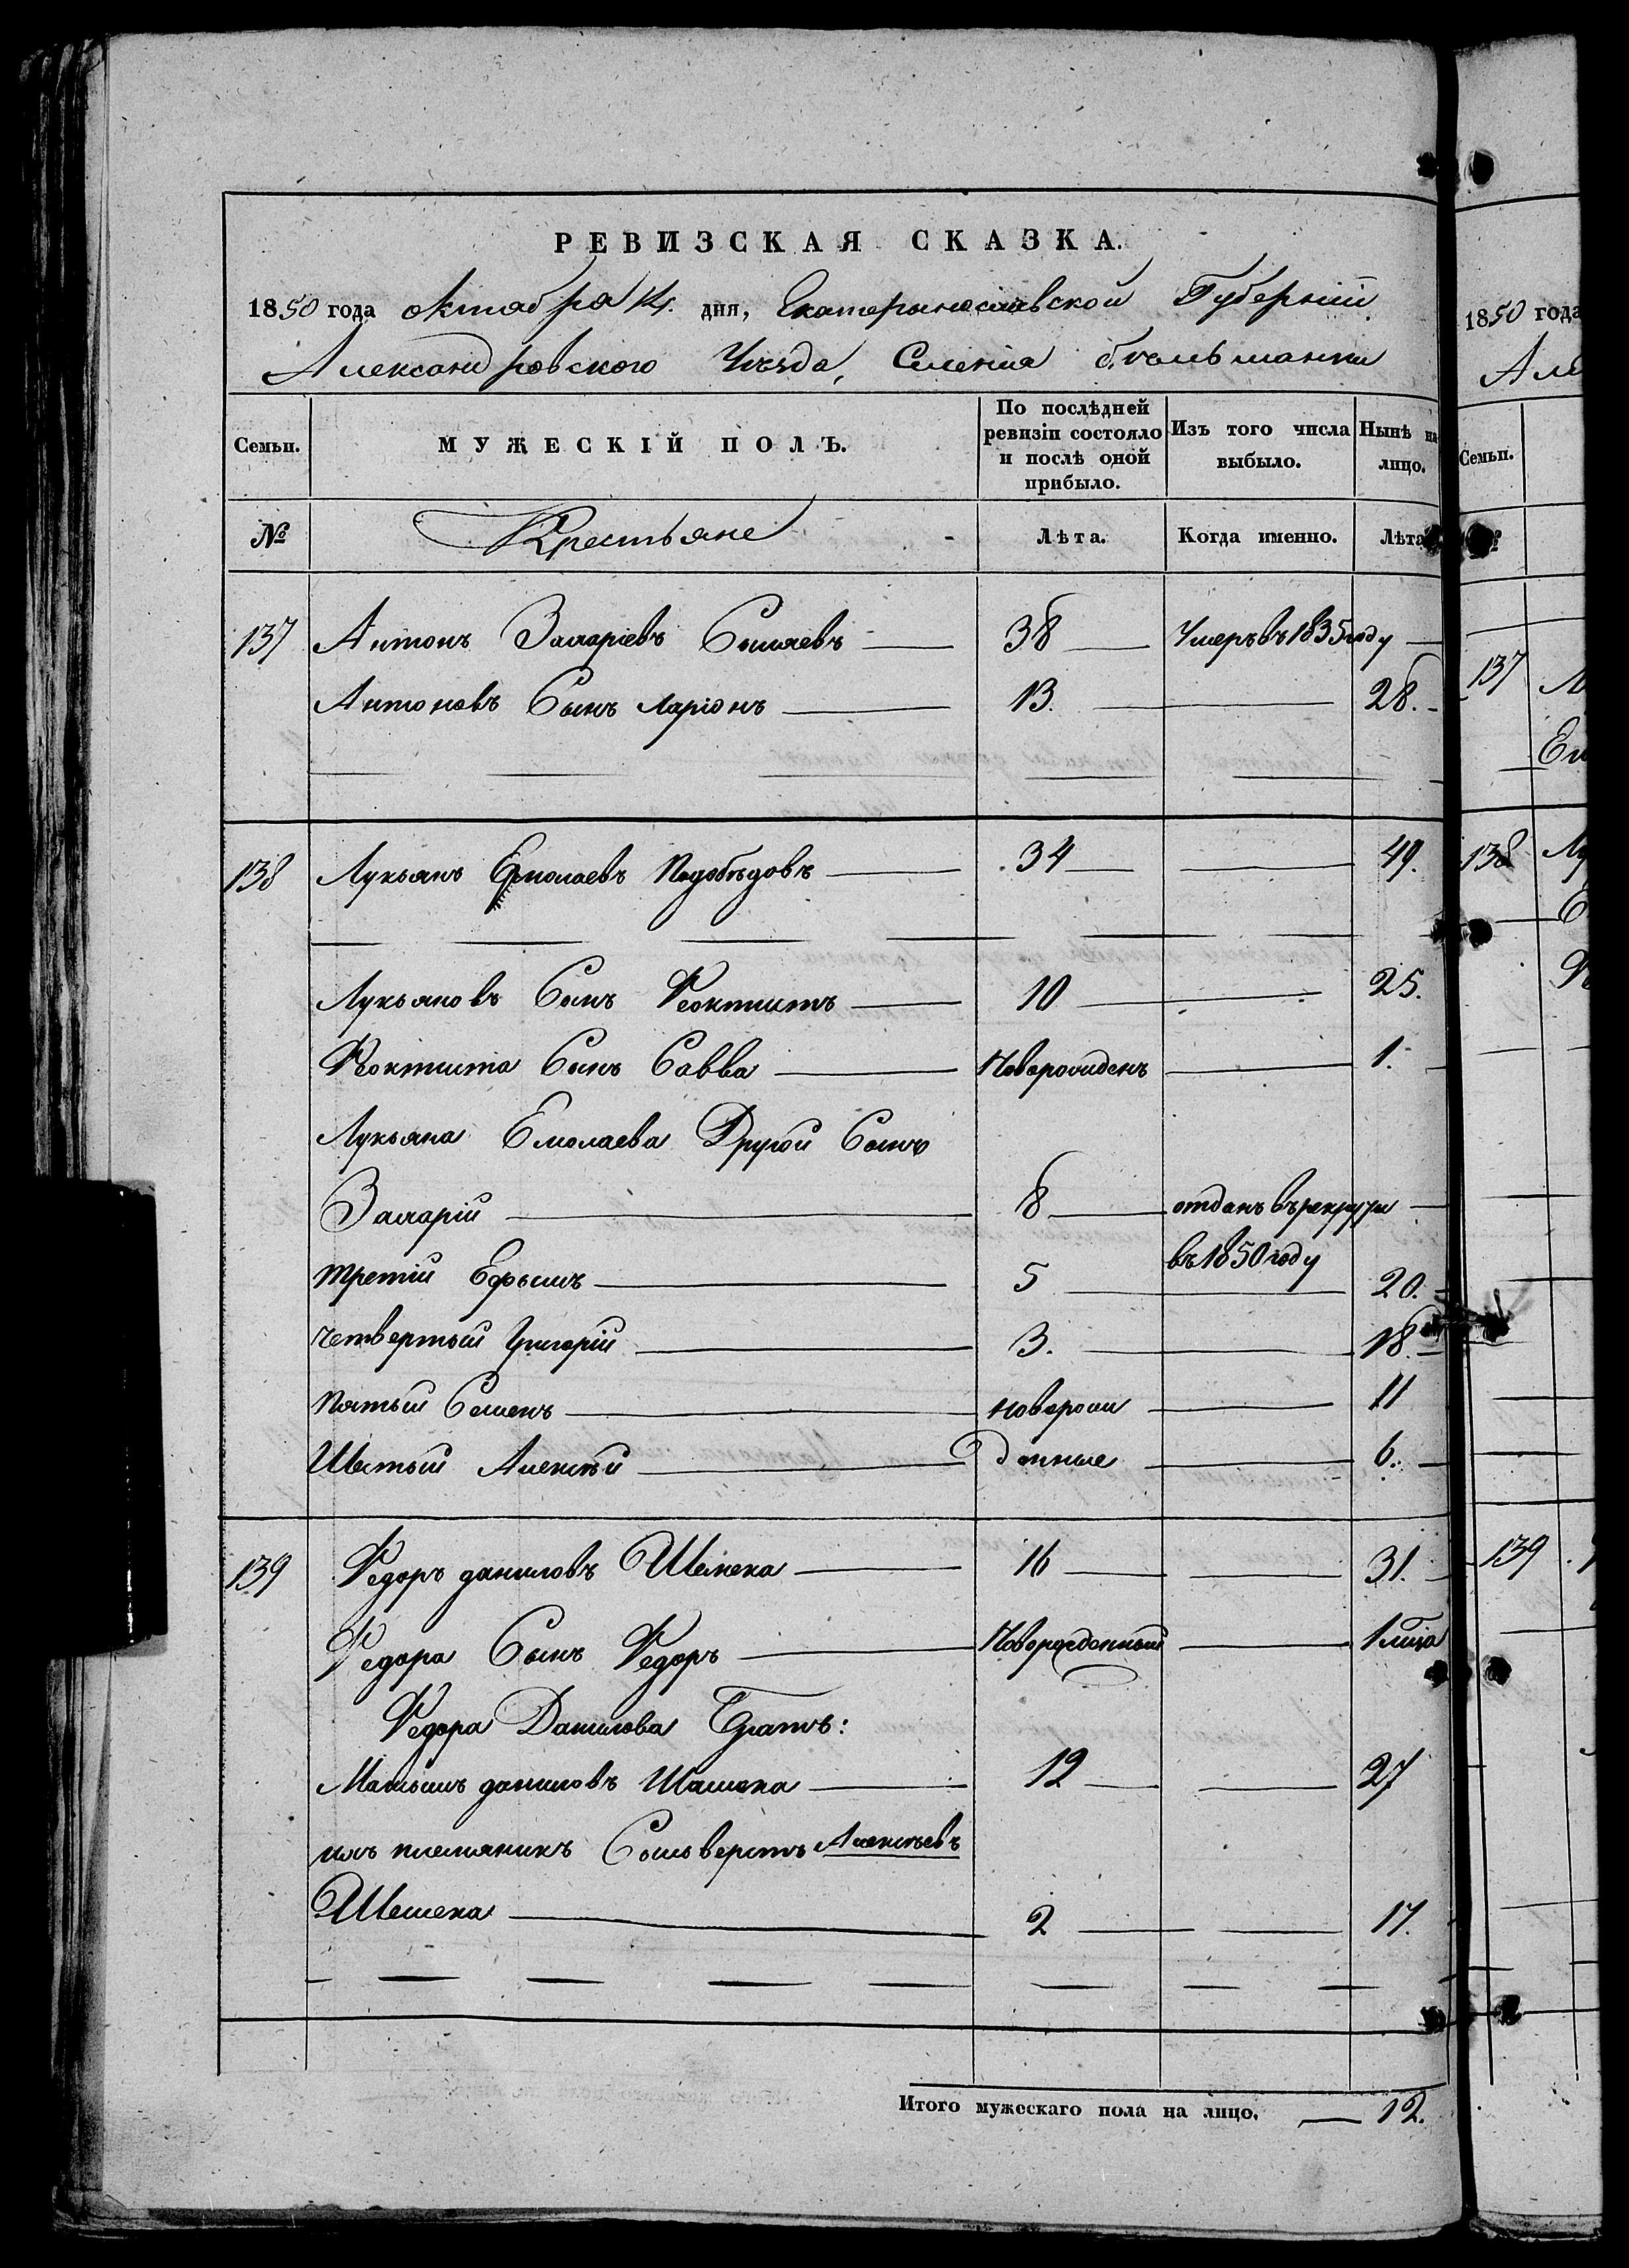 РЕВИЗСКАЯ СКАЗКА.
1850 года октября 14. дня, Екатеринославской Губерніи
Александровского Уѣзда, Селенія
Семьи. МУЖЕСКІЙ ПОЛЪ. По послѣдней ревизіи состояло и послѣ оной прибыло. Изъ того числа выбыло. Нынѣ на лицо.
№ Крестьяне Лѣта. Когда именно. Лѣта
137 Антонъ Захаріевъ 38 Умеръ въ 1835 году
Антоновъ Сынъ Ларіонъ 13. 28.
138 Лукьянъ Ермолаевъ Подобѣдовъ 34 49.
Лукьяновъ Сынъ Феоктистъ 10 25.
Феоктиста Сынъ Савва Новорожденъ 1.
Лукьяна Емолаева Другой Сынъ
Захарій 8 отданъ въ рекруты
въ 1850 году
третій Ефымъ 5 20.
четвертый Григорій 3. 18.
пятый Семенъ новорож 11
Шестый Алексѣй денные 6.
139 Федоръ даниловъ Шемека 16 31.
Федора Сынъ Федоръ Новорожденный
Федора Данилова Братъ:
Максимъ даниловъ Шемека 12 27
ихъ племяникъ Сельверстъ Алексѣевъ
Шемека 2 17.
Итого мужескаго пола на лицо, 12.
1850 года
Але
Семьи.
137
138
139